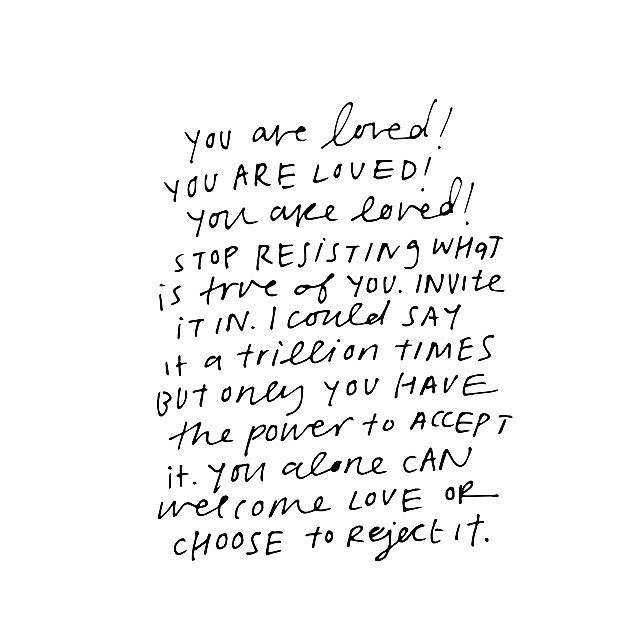 you are loved!
YOU ARE LOVED!
you are loved!
STOP RESISTING WHAT
is true of YOU. INVITE
iT IN. I could SAY
it a trillion TIMES
BUT only YOU HAVE
the power to ACCEPT
it. you alone CAN
welcome LOVE OR
CHOOSE to Reject IT.